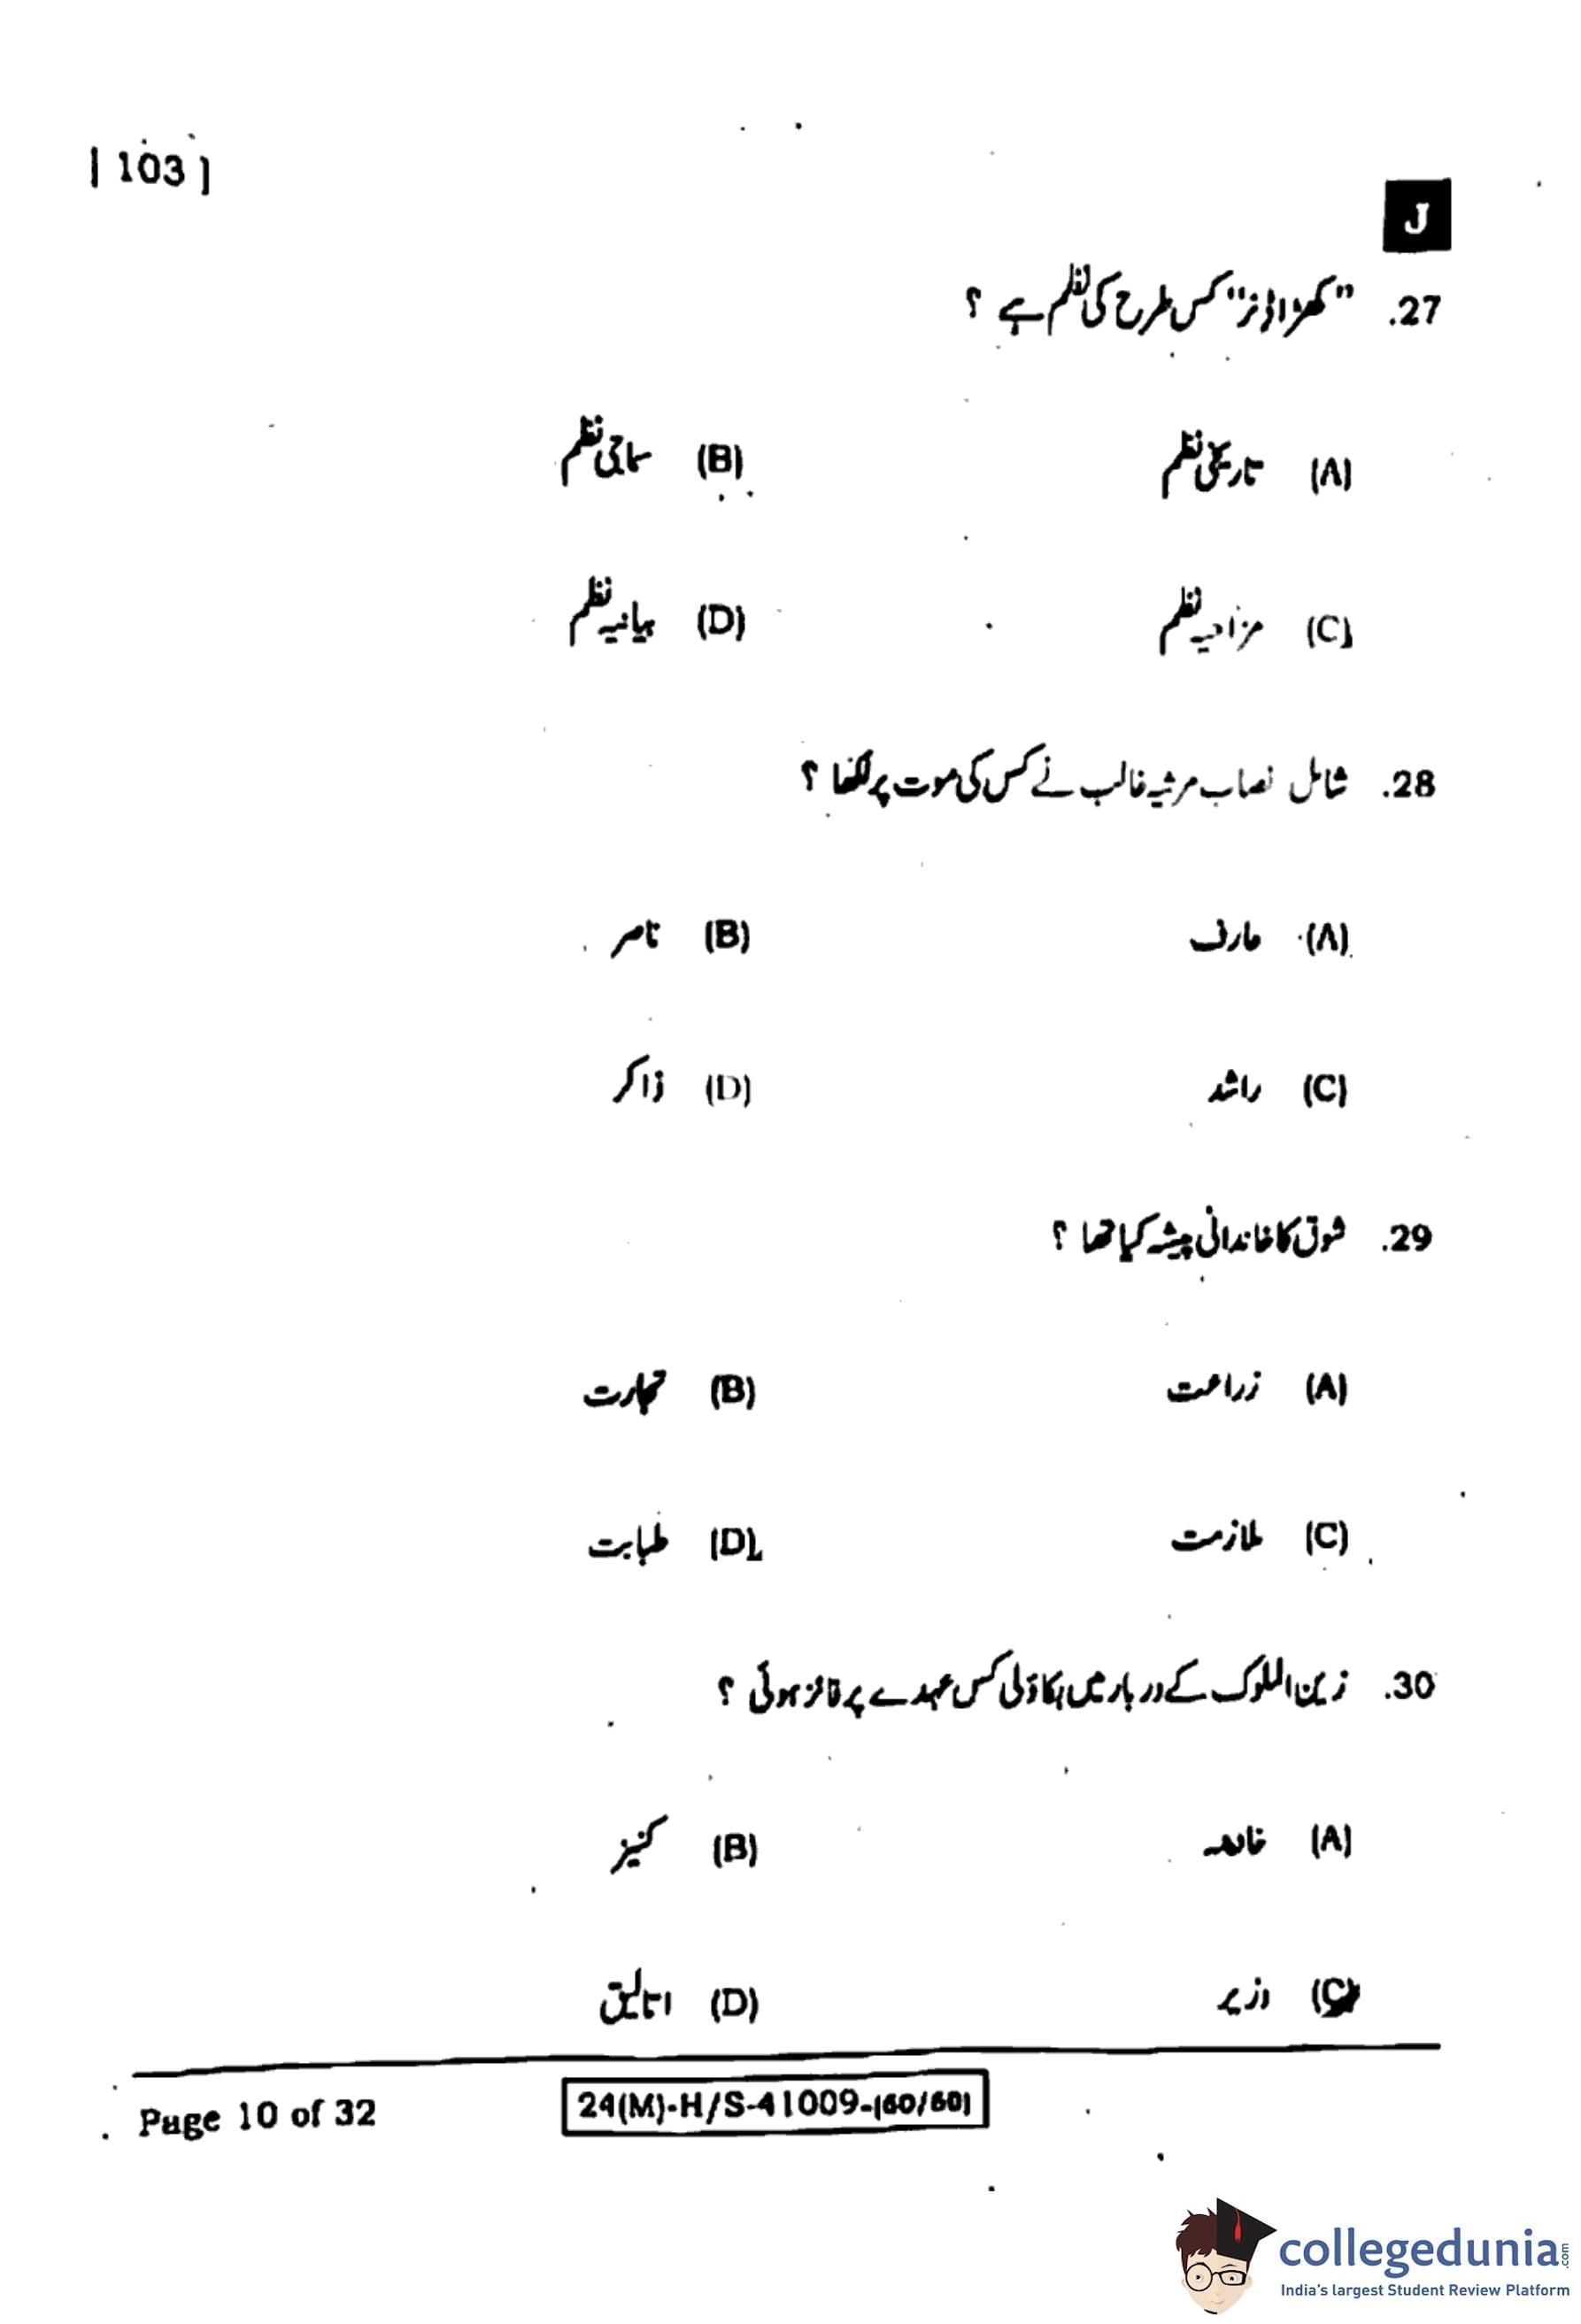 [ 103 ]
J
27. "کھڑاؤنر" کس طرح کی نظم ہے ؟
(A) تاریخی نظم (B) سماجی نظم
(C) مزاحیہ نظم (D) بیانیہ نظم
28. شامل نصاب مرثیہ غالب نے کس کی موت پر لکھا ؟
(A) عارف (B) ناصر
(C) راشد (D) ذاکر
29. شوق کا خاندانی پیشہ کیا تھا ؟
(A) زراعت (B) تجارت
(C) ملازمت (D) طبابت
30. زین الملوک کے دربار میں بکاؤلی کس عہدے پر فائز ہوئی ؟
(A) خادمہ (B) کنیز
(C) وزیر (D) اتالیق
Page 10 of 32
24(M)-H/S-41009-(60/60)
collegedunia.com
India's largest Student Review Platform